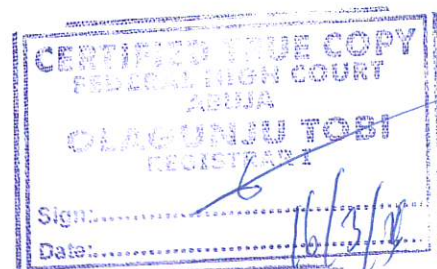 CERTIFIED TRUE COPY
FEDERAL HIGH COURT
ABUJA
OLAGUNJU TOBI
REGISTRAR I
Sign:
Date: 16/3/